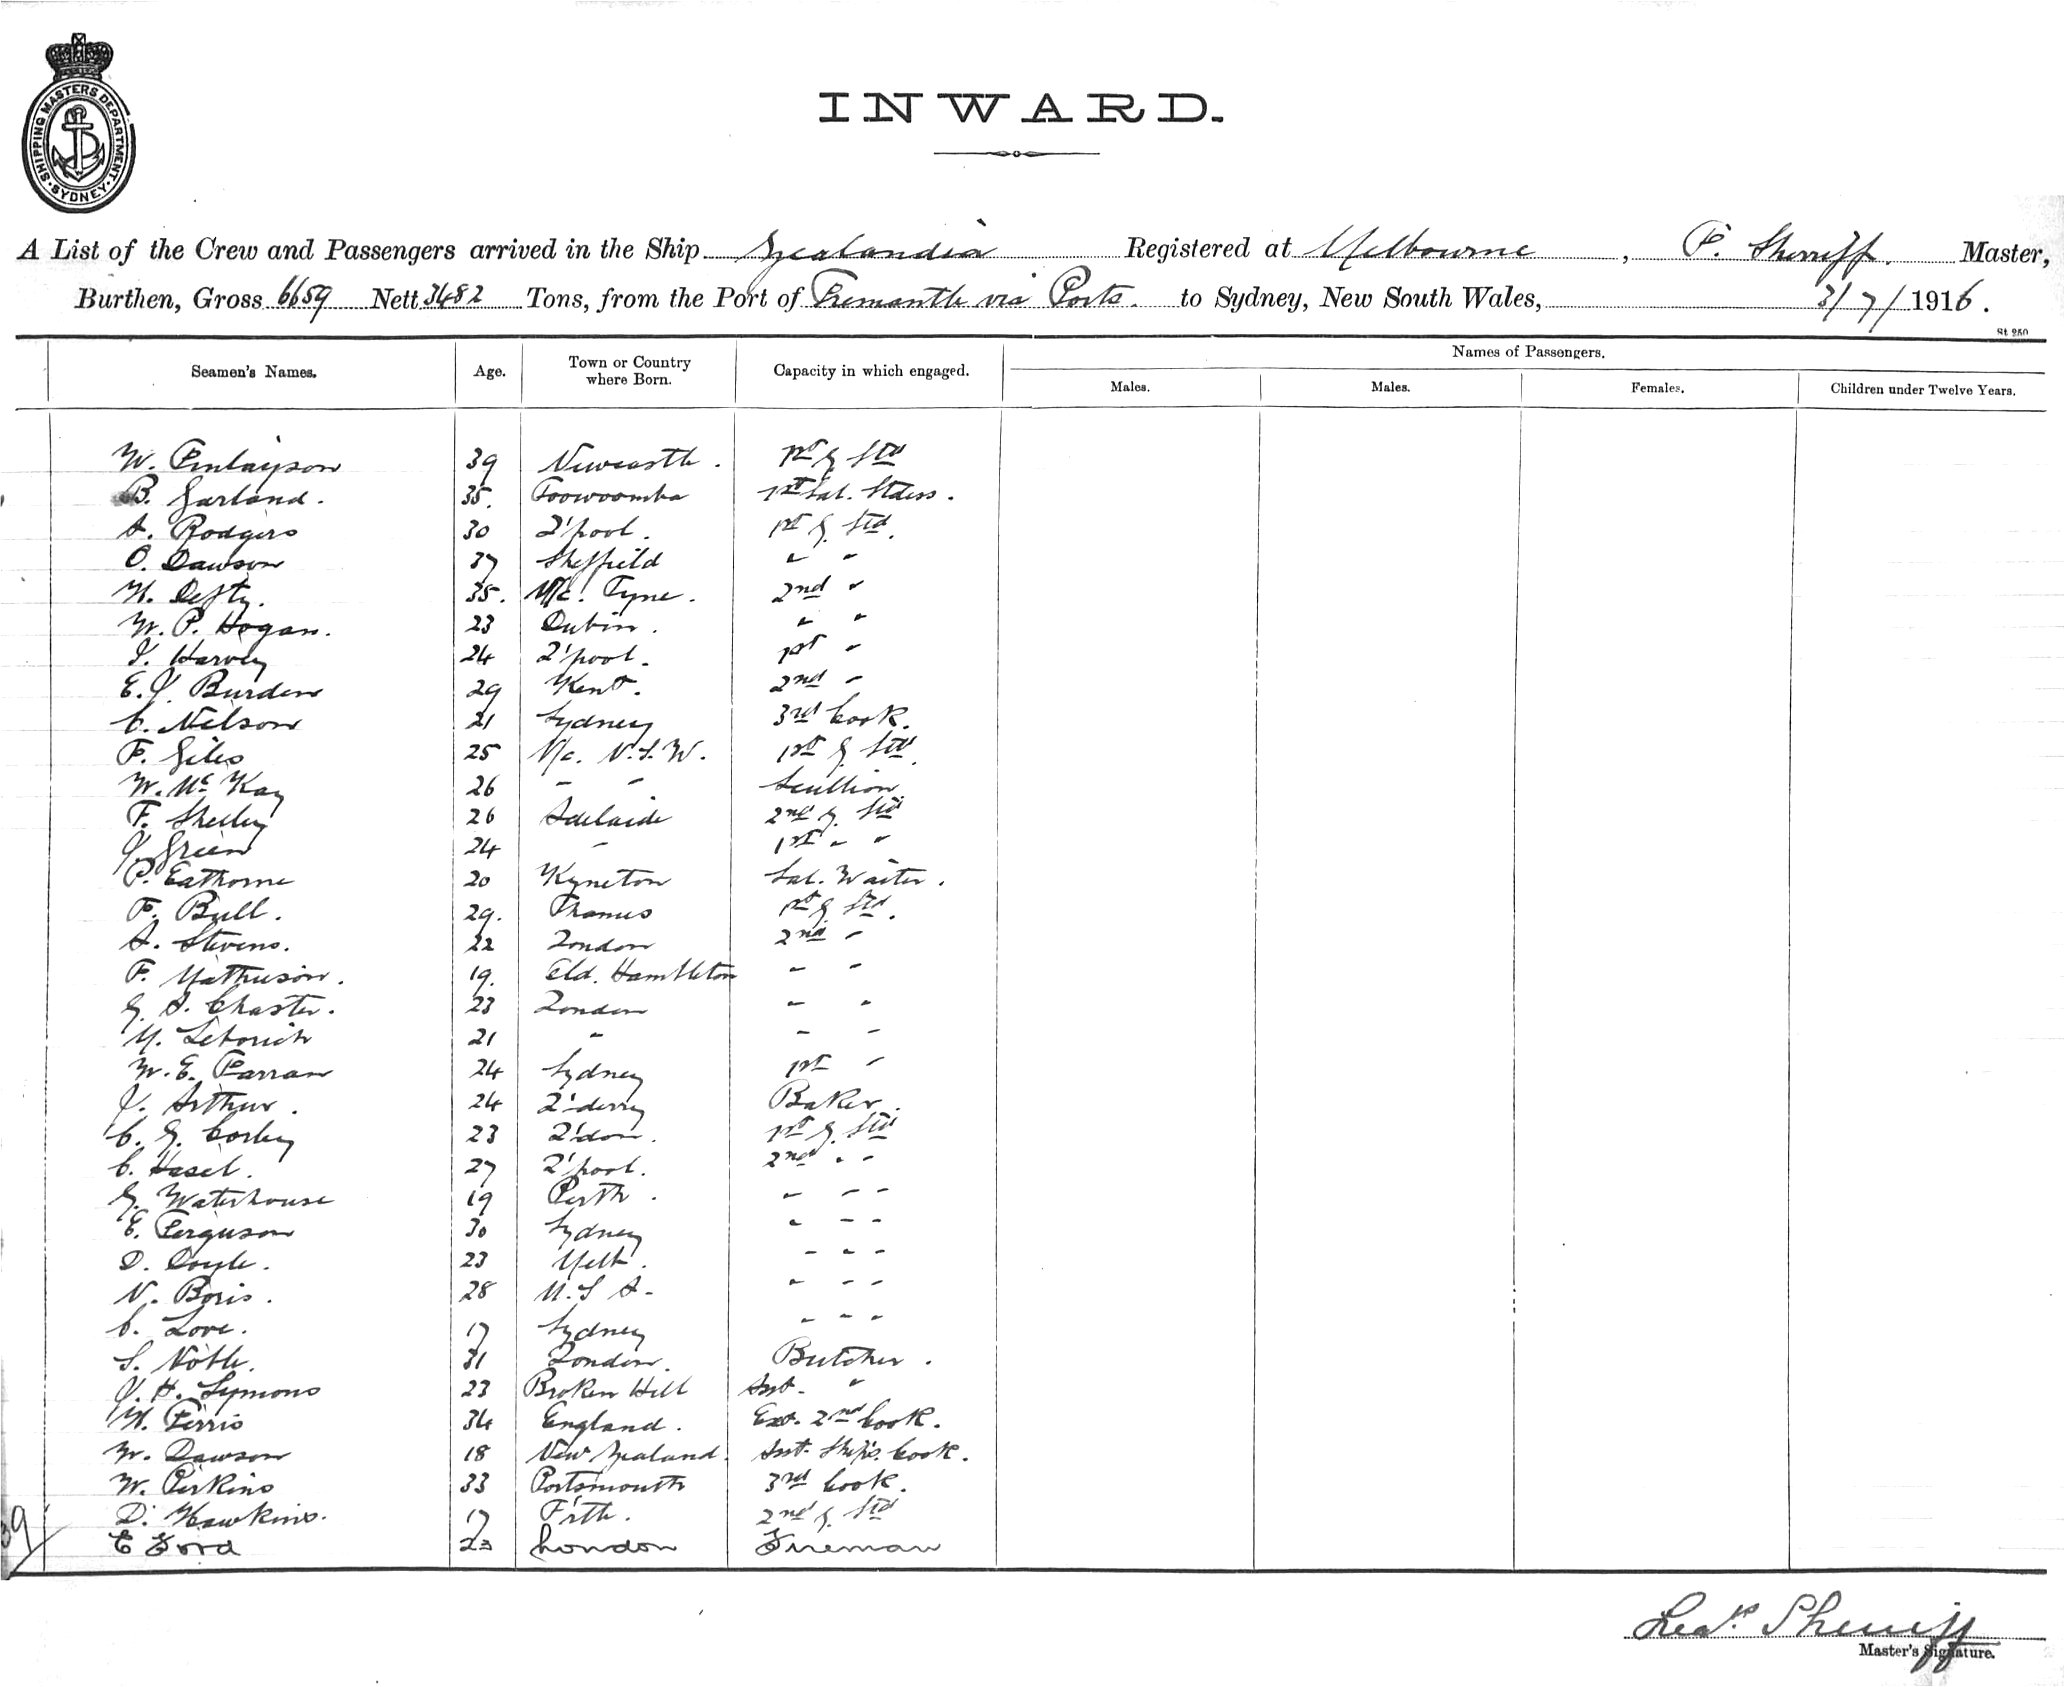 SHIPPING MASTERS DEPARTMENT · SYDNEY ·
INWARD.
A List of the Crew and Passengers arrived in the Ship Zealandia Registered at Melbourne, F. Sherriff. Master,
Burthen, Gross 6659 Nett 3482 Tons, from the Port of Fremantle via Ports. to Sydney, New South Wales, 3/7/1916.
St 250
Seamen's Names. Age. Town or Country where Born. Capacity in which engaged. Names of Passengers.
Males. Males. Females. Children under Twelve Years.
W. Finlayson 39 Newcastle. 1st G. Std
B. Garland. 35. Toowoomba 1st Sal. Stdess.
A. Rodgers 30 L'pool. 1st G. Std.
O. Dawson 37 Sheffield " "
W. Defty. 35. N/c. Tyne. 2nd "
W. P. Hogan. 23 Dubin. " "
J. Harvey 24 L'pool. 1st "
E. J. Burden 29 Kent. 2nd "
C. Nelson 21 Sydney 3rd Cook.
F. Giles 25 N/c. N.S.W. 1st G. Std.
W. McKay 26 " " Scullion.
F. Shelley 26 Adelaide 2nd G. Std
J. Green 24 " 1st " "
P. Eathorne 20 Kyneton Sal. Waiter.
F. Bull. 29. Thames 1st G. Std.
A. Stevens. 22 London 2nd "
F. Mathieson. 19. Eld. Hambleton " "
G. A. Chaster. 23 London " "
M. 21 " " "
W. E. Farran 24 Sydney 1st "
J. Arthur. 24 L'derry Baker.
C. G. Corley 23 L'don. 1st G. Std
C. Hasel. 27 L'pool. 2nd " "
G. Waterhouse 19 Perth. " " "
E. Ferguson 30 Sydney " " "
D. Doyle. 23 Melb. " " "
N. Boris. 28 U.S A. " " "
C. Love. 17 Sydney " " "
S. Noble. 31 London. Butcher.
J. H. Symons 23 Broken Hill Asst. "
W. Ferris 34 England. Ext. 2nd Cook.
W. Dawson 18 New Zealand. Asst. Ship's Cook.
W. Perkins 33 Portsmouth 3rd Cook.
D. Hawkins. 17 2nd G. Std
E Ford 23 London Fireman
39
Sherriff
Master's Signature.